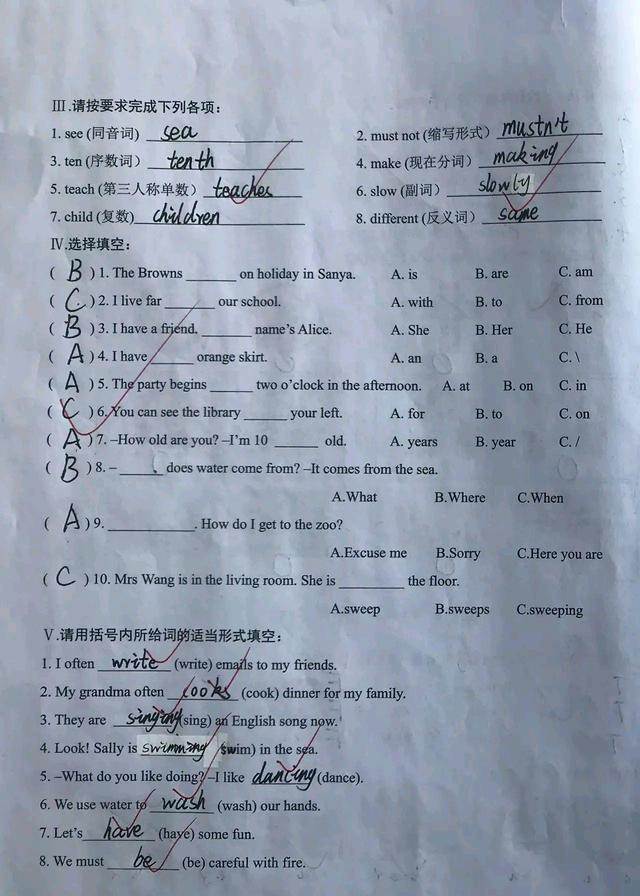 Ⅲ.请按要求完成下列各项：
1. see (同音词) sea 2. must not (缩写形式) mustn't
3. ten (序数词) tenth 4. make (现在分词) making
5. teach (第三人称单数) teaches 6. slow (副词) slowly
7. child (复数) children 8. different (反义词) same
Ⅳ.选择填空：
( B ) 1. The Browns ______ on holiday in Sanya. A. is B. are C. am
( C ) 2. I live far ______ our school. A. with B. to C. from
( B ) 3. I have a friend. ______ name's Alice. A. She B. Her C. He
( A ) 4. I have ______ orange skirt. A. an B. a C. \
( A ) 5. The party begins ______ two o'clock in the afternoon. A. at B. on C. in
( C ) 6. You can see the library ______ your left. A. for B. to C. on
( A ) 7. –How old are you? –I'm 10 ______ old. A. years B. year C. /
( B ) 8. – ______ does water come from? –It comes from the sea.
A.What B.Where C.When
( A ) 9. ____________. How do I get to the zoo?
A.Excuse me B.Sorry C.Here you are
( C ) 10. Mrs Wang is in the living room. She is _________ the floor.
A.sweep B.sweeps C.sweeping
Ⅴ.请用括号内所给词的适当形式填空：
1. I often write (write) emails to my friends.
2. My grandma often cooks (cook) dinner for my family.
3. They are singing (sing) an English song now.
4. Look! Sally is swimming (swim) in the sea.
5. –What do you like doing? –I like dancing (dance).
6. We use water to wash (wash) our hands.
7. Let's have (have) some fun.
8. We must be (be) careful with fire.